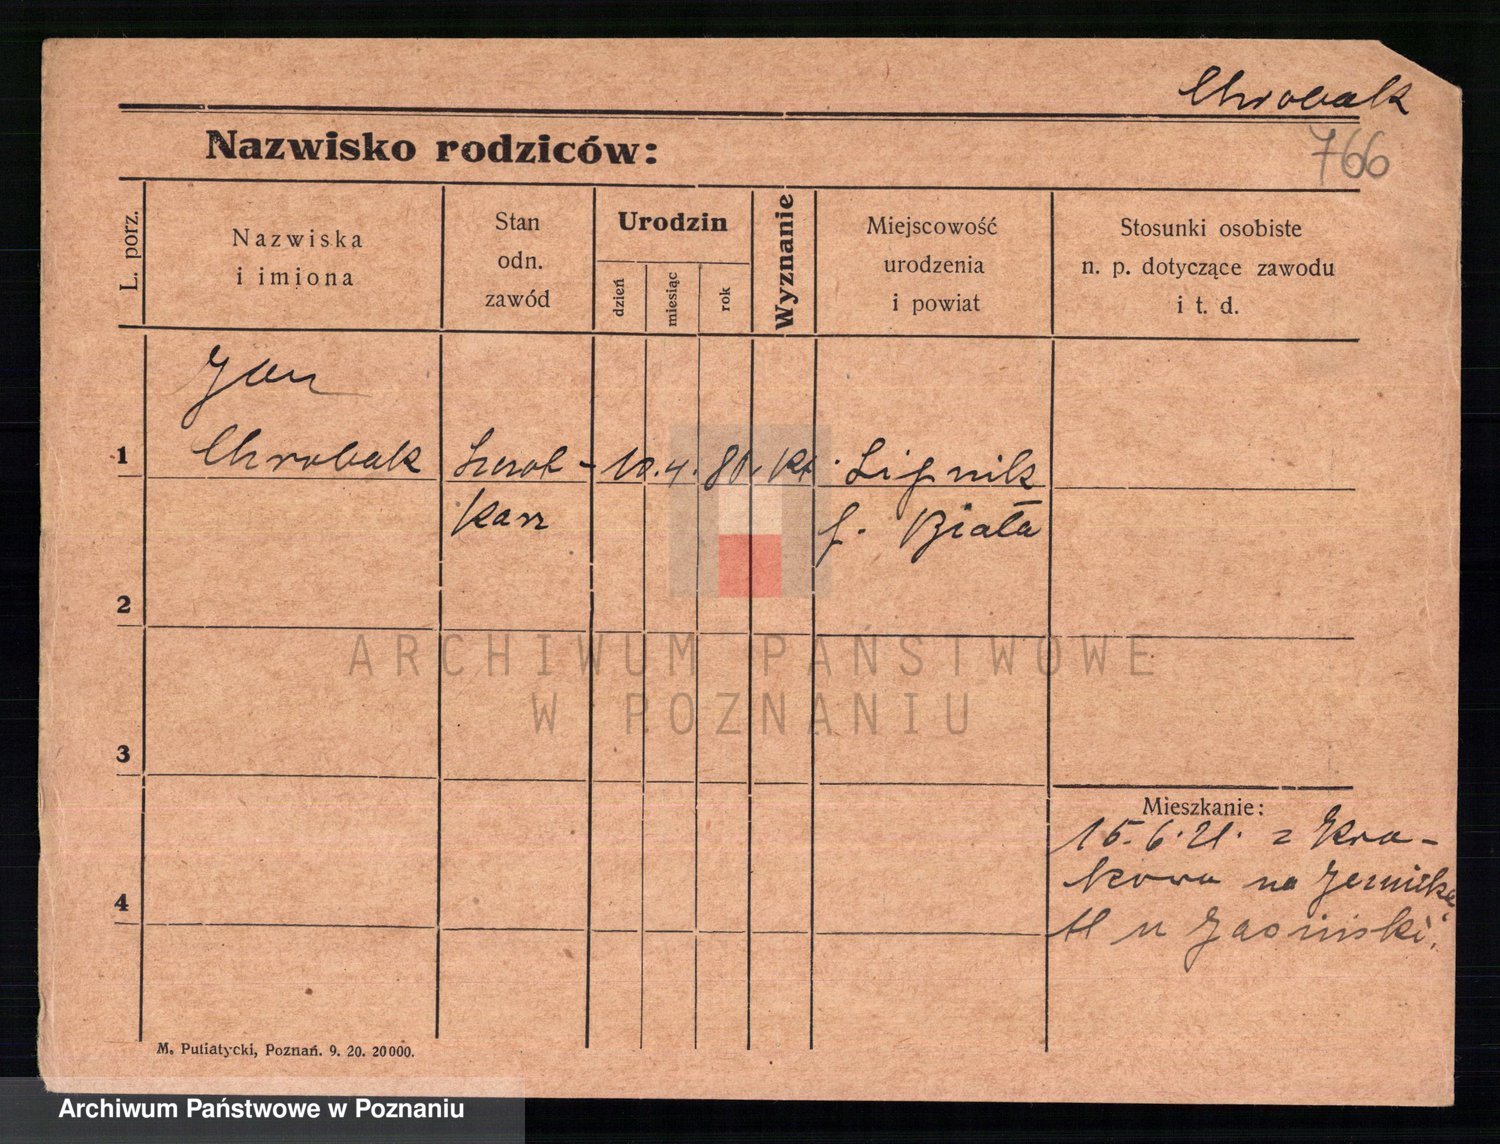 Chrobak
766
Nazwisko rodziców:
L. porz.
Nazwiska
i imiona
Stan
odn.
zawód
Urodzin
dzień
miesiąc
rok
Wyznanie
Miejscowość
urodzenia
i powiat
Stosunki osobiste
n. p. dotyczące zawodu
i t. d.
Jan
1 Chrobak 10. 4. 80. kt. Lipnik
Biała
2
3
4
Mieszkanie:
15.6.21. z Kra-
kowa na
u Jasiński.
M. Putiatycki, Poznań. 9. 20. 20000.
ARCHIWUM PAŃSTWOWE
W POZNANIU
Archiwum Państwowe w Poznaniu